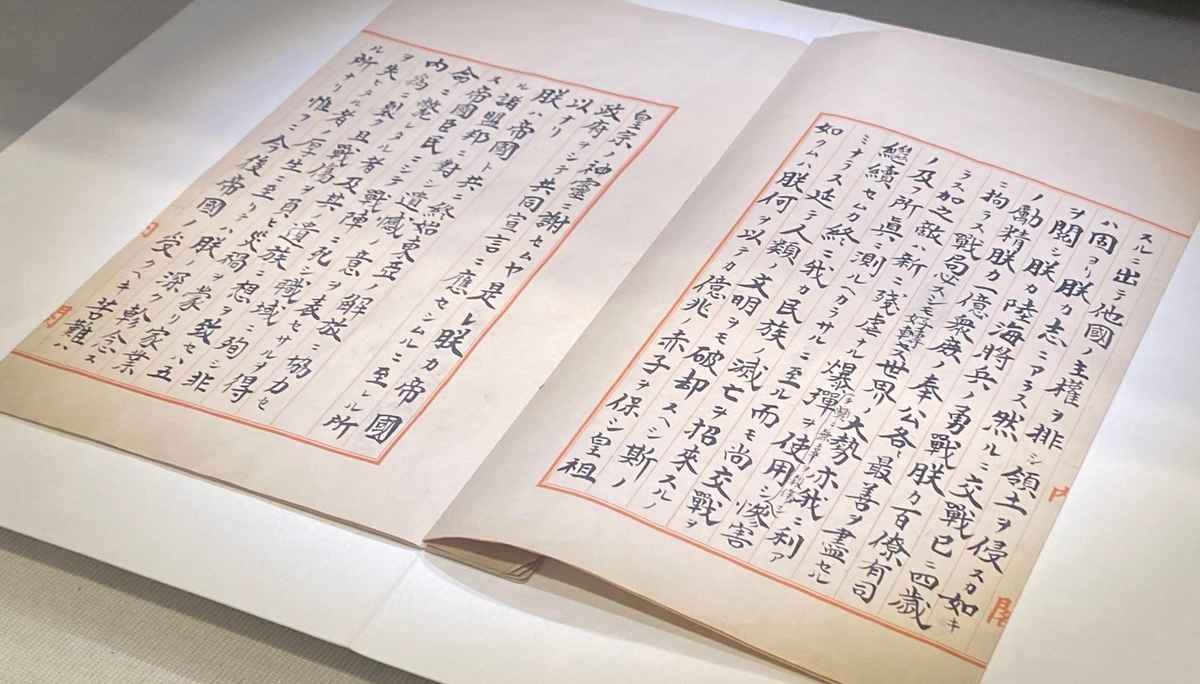 スルニ出テ他國ノ主權ヲ排シ領土ヲ侵スカ如キ
ハ固ヨリ朕カ志ニアラス然ルニ交戰已ニ四歲
ヲ閱シ朕カ陸海將兵ノ勇戰朕カ百僚有司
ノ勵精朕カ一億衆庶ノ奉公各〻最善ヲ盡セル
ニ拘ラス戰局必スシモ好轉セス世界ノ大勢亦我ニ利ア
ラス加之敵ハ新ニ殘虐ナル爆彈ヲ使用シ頻ニ無辜ヲ殺傷シ慘害
ノ及フ所眞ニ測ルヘカラサルニ至ル而モ尚交戰ヲ
繼續セムカ終ニ我カ民族ノ滅亡ヲ招來スルノ
ミナラス延テ人類ノ文明ヲモ破却スヘシ斯ノ
如クムハ朕何ヲ以テカ億兆ノ赤子ヲ保シ皇祖
內閣
皇宗ノ神靈ニ謝セムヤ是レ朕カ帝國
政府ヲシテ共同宣言ニ應セシムルニ至レル所
以ナリ
朕ハ帝國ト共ニ終始東亞ノ解放ニ協力セ
ル諸盟邦ニ對シ遺憾ノ意ヲ表セサルヲ得
ス帝國臣民ニシテ戰陣ニ死シ職域ニ殉シ非
命ニ斃レタル者及其ノ遺族ニ想ヲ致セハ五
內爲ニ裂ク且戰傷ヲ負ヒ災禍ヲ蒙リ家業
ヲ失ヒタル者ノ厚生ニ至リテハ朕ノ深ク軫念ス
ル所ナリ惟フニ今後帝國ノ受クヘキ苦難ハ